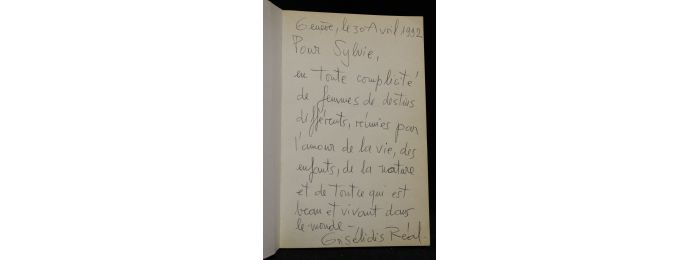 Genève, le 30 Avril 1992
Pour Sylvie,
en toute complicité
de femmes de destins
différents, réunies par
l'amour de la vie, des
enfants, de la nature
et de tout ce qui est
beau et vivant dans
le monde -
Grisélidis Réal.